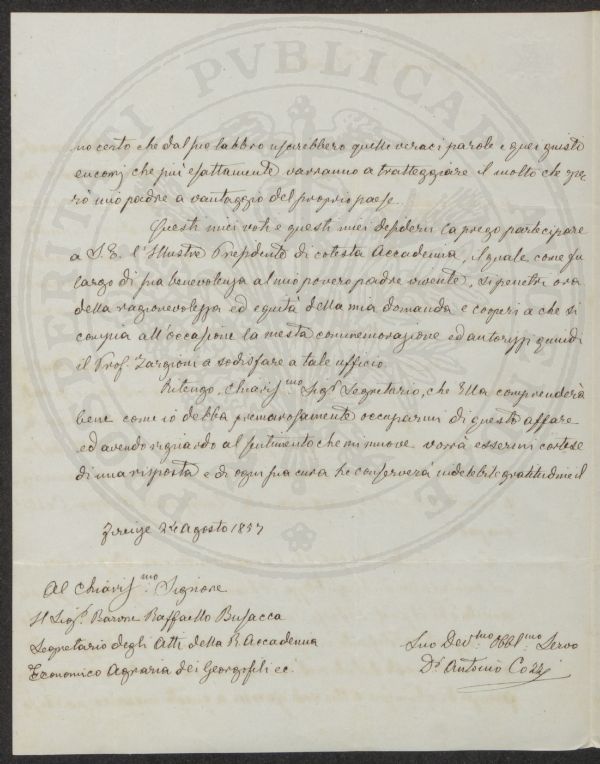 no certo che dal suo labbro uscirebbero quelle veraci parole e quei giusti
encomj che più esattamente varranno a tratteggiare il molto che ope-
rò mio padre a vantaggio del proprio paese.
Questi miei voti e questi miei desiderii la prego partecipare
a S.E. l'Illustre Presidente di cotesta Accademia, il quale come fu
largo di sua benevolenza al mio povero padre vivente, si penetri ora
della ragionevolezza ed equità della mia domanda e cooperi a che si
compia all'occasione la mesta commemorazione ed autorizzi quindi
il Prof. Targioni a sodisfare a tale ufficio.
Ritengo, Chiariss.mo Sig.r Segretario, che Ella comprenderà
bene come io debba premurosamente occuparmi di questo affare
ed avendo riguardo al sentimento che mi muove vorrà essermi cortese
di una risposta e di ogni sua cura he conserverà indelebile gratitudine il
Firenze 24 Agosto 1857
Al Chiariss.mo Signore
Il Sig.r Barone Raffaello Busacca
Segretario degli Atti della R. Accademia
Economico Agraria dei Georgofili ec.
Suo Dev.mo Obbl.mo Servo
D.r Antonio Cozzi
PVBLICAE
PROSPERITATI